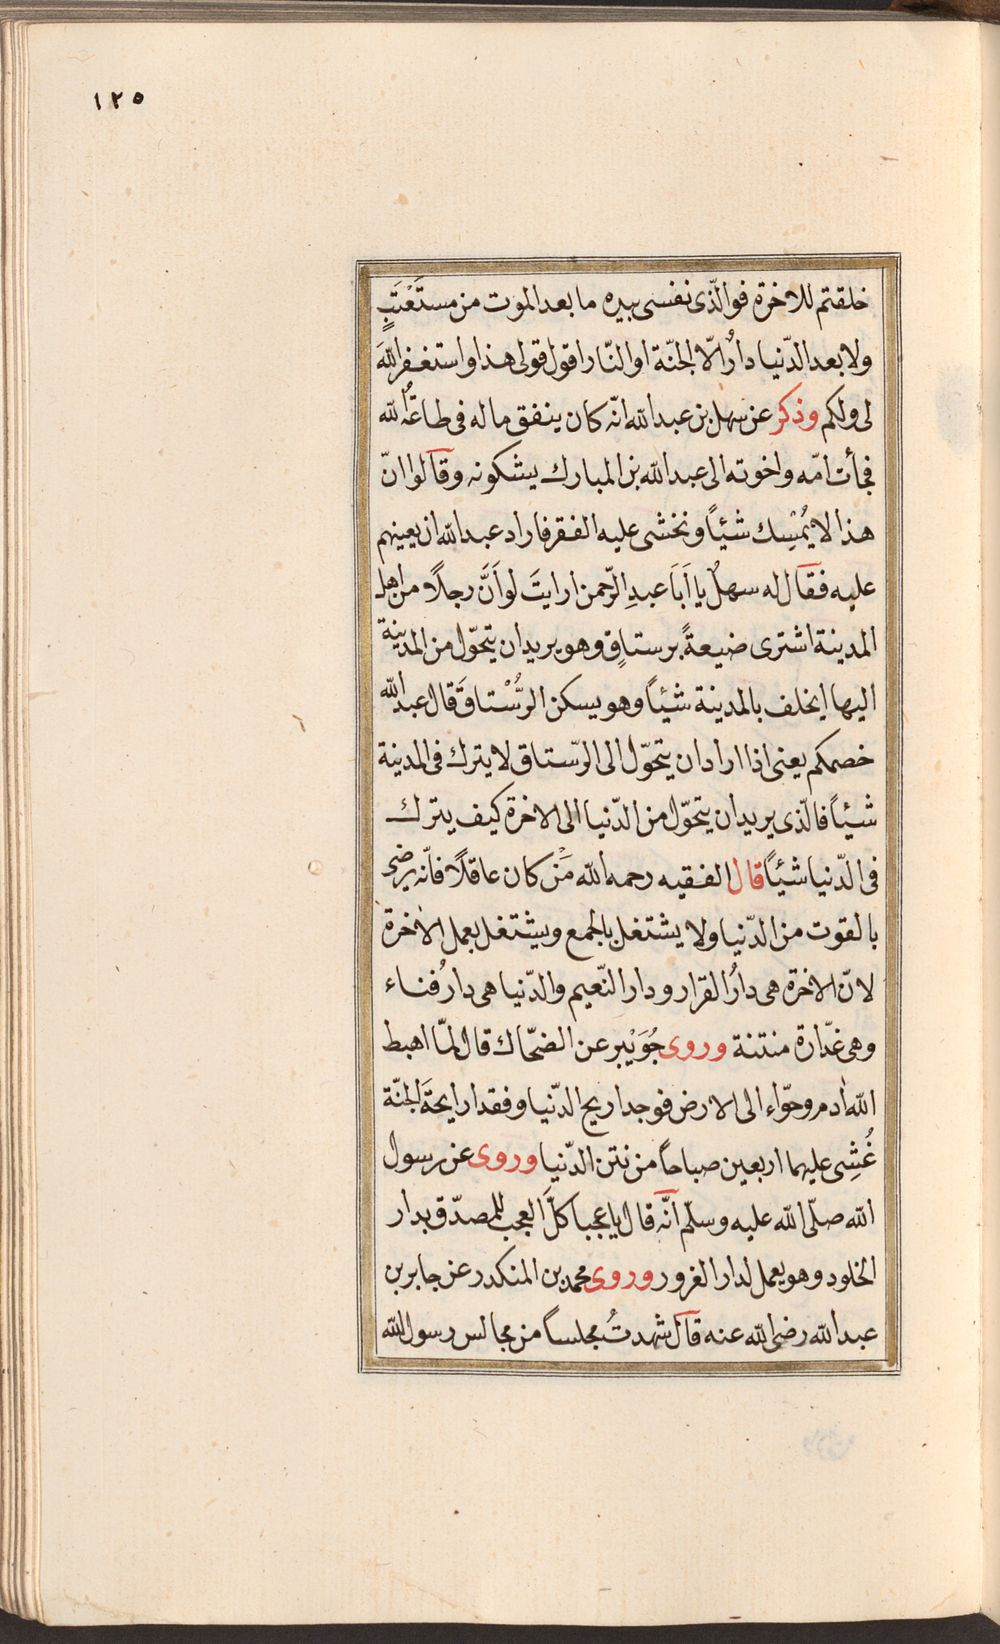 ١٢٥
خلقتم للاخرة فوالّذى نفسى بيده ما بعد الموت من مستَعْتَبٍ
ولا بعد الدّنيا دارٌ الّا الجنّة او النّار اقول قولى هذا واستغفر اللّهَ
لى ولكم وذكر عن سهل بن عبد الله انّه كان ينفق ماله فى طاعة الله
فجأت امّه واخوته الى عبد الله بن المبارك يشكونه وقالوا انّ
هذا لا يُمْسِك شيئاً ونخشى عليه الفقر فاراد عبد الله ان يعينهم
عليه فقال له سهلٌ يا اَبَا عبدِ الرّحمن ارايتَ لو اَنَّ رجلًا من اهل
المدينة اشترى ضيعةً برستاقٍ وهو يريد ان يتحوّل من المدينة
اليها ايخلف بالمدينة شيئاً وهو يسكن الرُّسْتاقَ قال عبد اللّه
خصمكم يعنى اذا اراد ان يتحوّل الى الرّستاق لا يترك فى المدينة
شيئاً فالّذى يريد ان يتحوّل من الدّنيا الى الاخرة كيف يترك
فى الدّنيا شيئاً قال الفقيه رحمه الله مَنْ كان عاقلًا فانّه يرضى
بالقوت من الدّنيا ولا يشتغل بالجمع ويشتغل بعمل الاخرة
لانّ الاخرة هى دارُ القرار ودار النّعيم والدّنيا هى دارُ فناء
وهى غدّارة منتنة وروى جُوَيْبر عن الضحّاك قال لمّا اهبط
اللّه اٰدم وحوّاء الى الارض فوجدا ريح الدّنيا وفقدا رايحةَ الجنّة
غُشِى عليهما اربعين صباحاً من نتن الدّنيا وروى عن رسول
اللّه صلّى اللّه عليه وسلّم انّه قال يا عجبا كلَّ العجب للمصدّق بدار
الخلود وهو يعمل لدار الغرور وروى محمد بن المنكدر عن جابر بن
عبد الله رضى الله عنه قال شهدتُ مجلساً من مجالس رسول الله